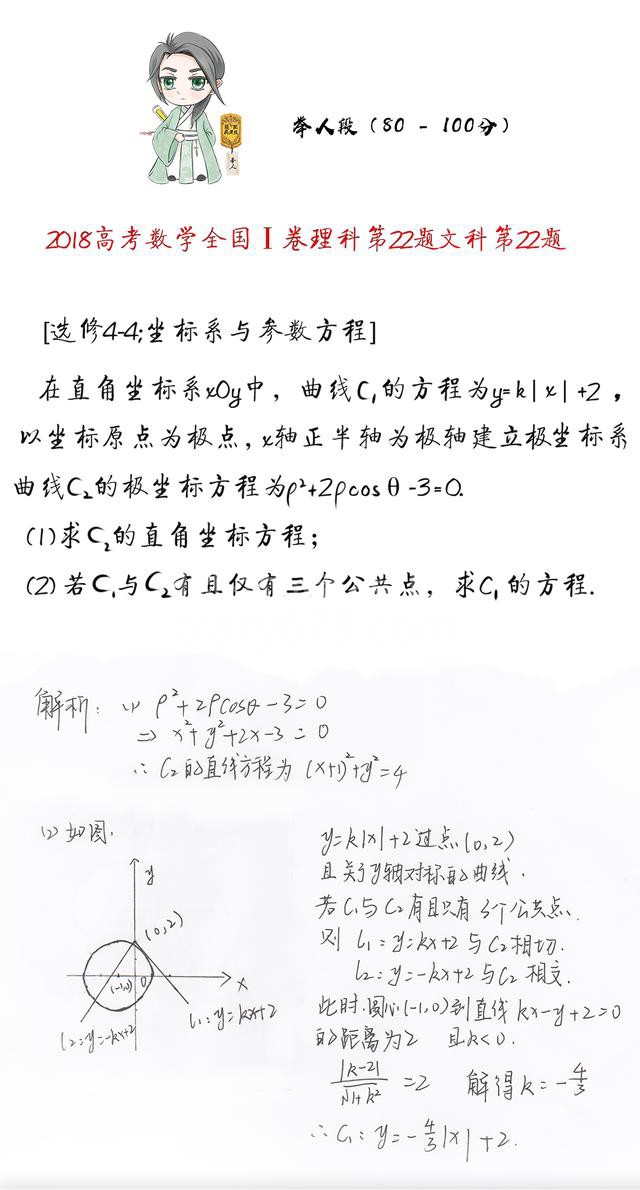 举人段（80 - 100分）
举人
2018高考数学全国Ⅰ卷理科第22题文科第22题
[选修4-4;坐标系与参数方程]
在直角坐标系xOy中，曲线C₁的方程为y=k|x|+2，
以坐标原点为极点，x轴正半轴为极轴建立极坐标系
曲线C₂的极坐标方程为ρ²+2ρcosθ-3=0.
(1)求C₂的直角坐标方程；
(2)若C₁与C₂有且仅有三个公共点，求C₁的方程.
解析：(1) ρ²+2ρcosθ-3=0
⇒ x²+y²+2x-3=0
∴ C₂的直线方程为 (x+1)²+y²=4
(2) 如图.
y
(0,2)
(-1,0)
0
x
l₂:y=-kx+2
l₁:y=kx+2
y=k|x|+2过点(0,2)
且关于y轴对称的曲线.
若C₁与C₂有且只有3个公共点.
则 l₁:y=kx+2与C₂相切.
l₂:y=-kx+2与C₂相交.
此时.圆心(-1,0)到直线kx-y+2=0
的距离为2 且k<0.
|k-2|/√1+k² =2 解得k=-4/3
∴C₁: y=-4/3|x|+2.